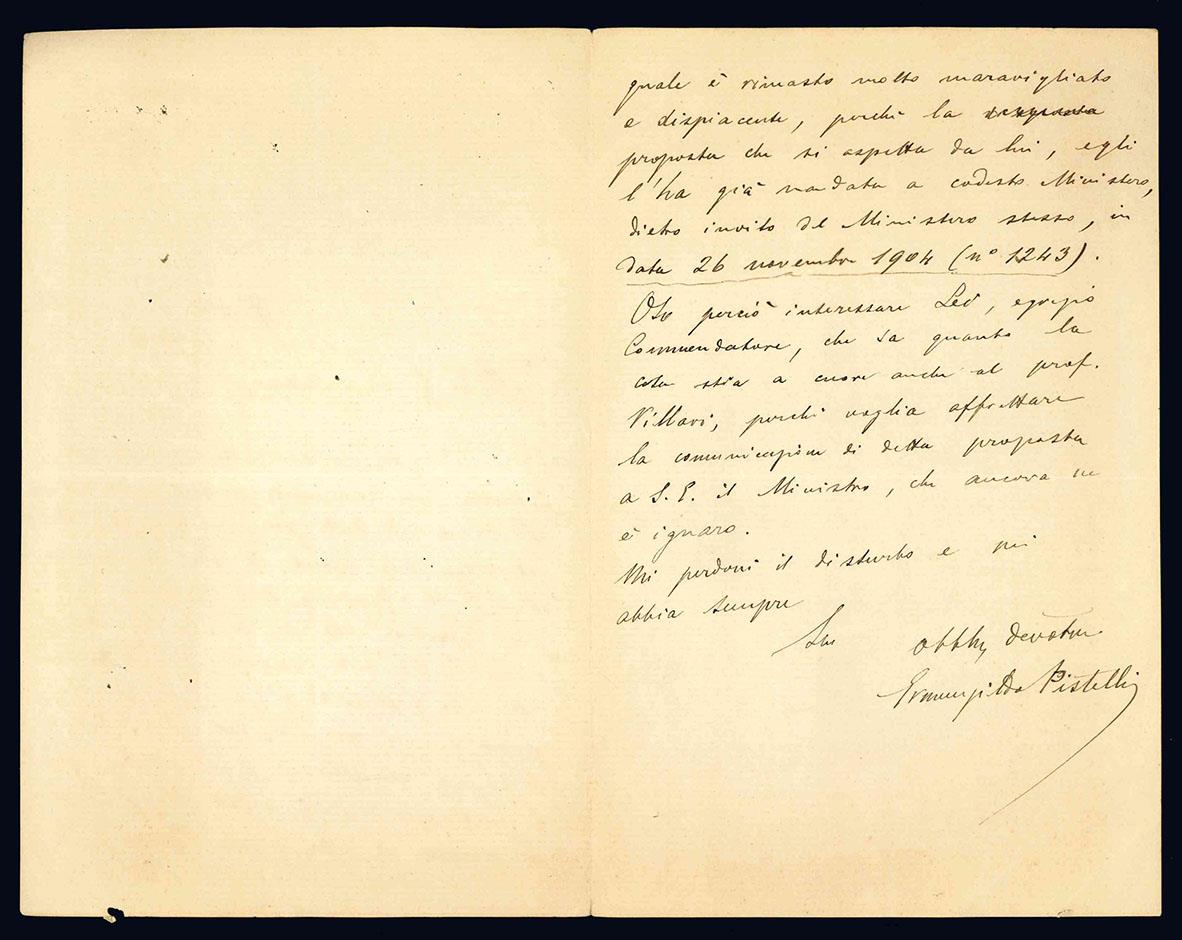 quale è rimasto molto maravigliato
e dispiacente, perchè la risposta
proposta che si aspetta da lui, egli
l'ha già mandata a codesto Ministero,
dietro invito del Ministero stesso, in
data 26 novembre 1904 (n° 1243).
Oso perciò interessare Lei, egregio
Commendatore, che sa quanto la
cosa stia a cuore anche al prof.
Villari, perchè voglia affrettare
la comunicazione di detta proposta
a S. E. il Ministro, che ancora ne
è ignaro.
Mi perdoni il disturbo e mi
abbia sempre
Suo obbly devotm
Ermenegildo Pistelli